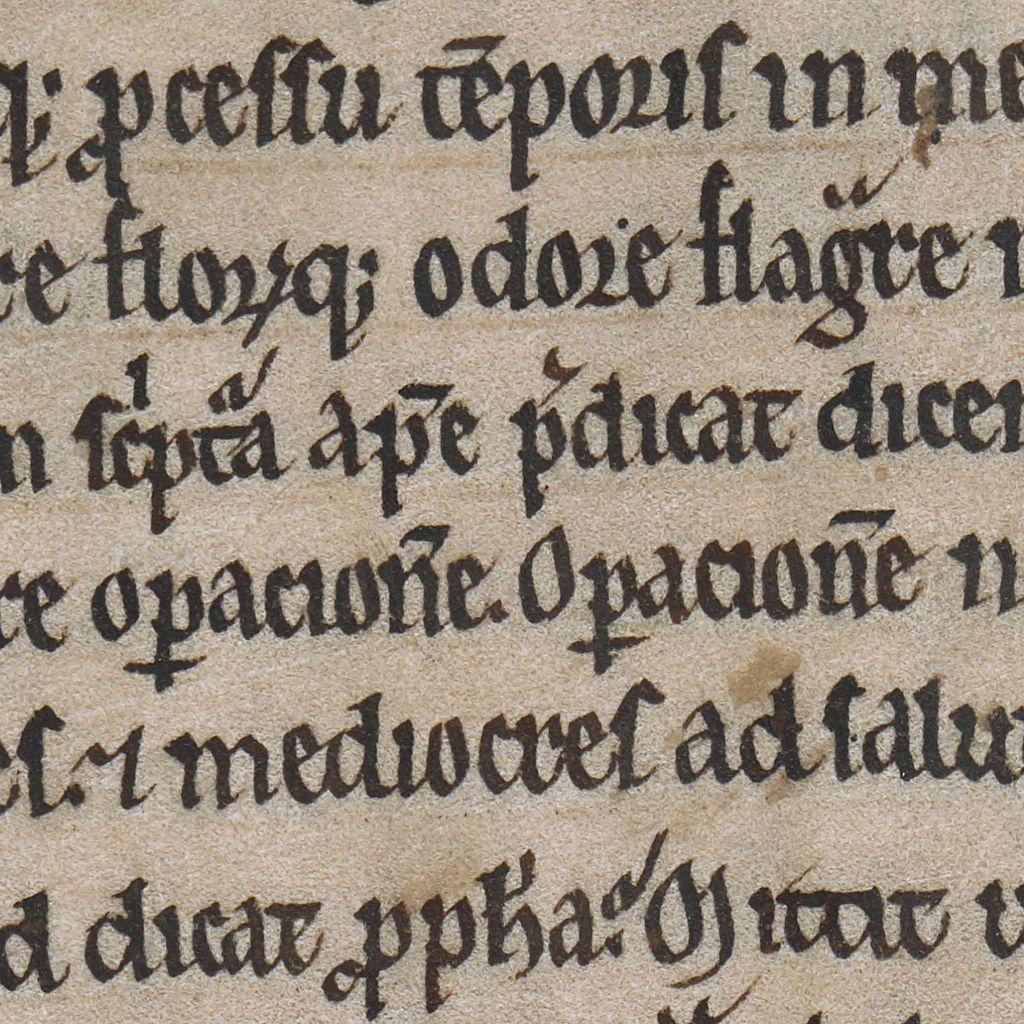 q; ꝓcessu tēporis in me
re floꝝq; odore flagͣre
scͥptͣa ap̄e p̄dicat dicen
re oꝑacion̄e. Oꝑacion̄e
es. ⁊ mediocres ad salu
d dicat ꝓph̓a. Mittit